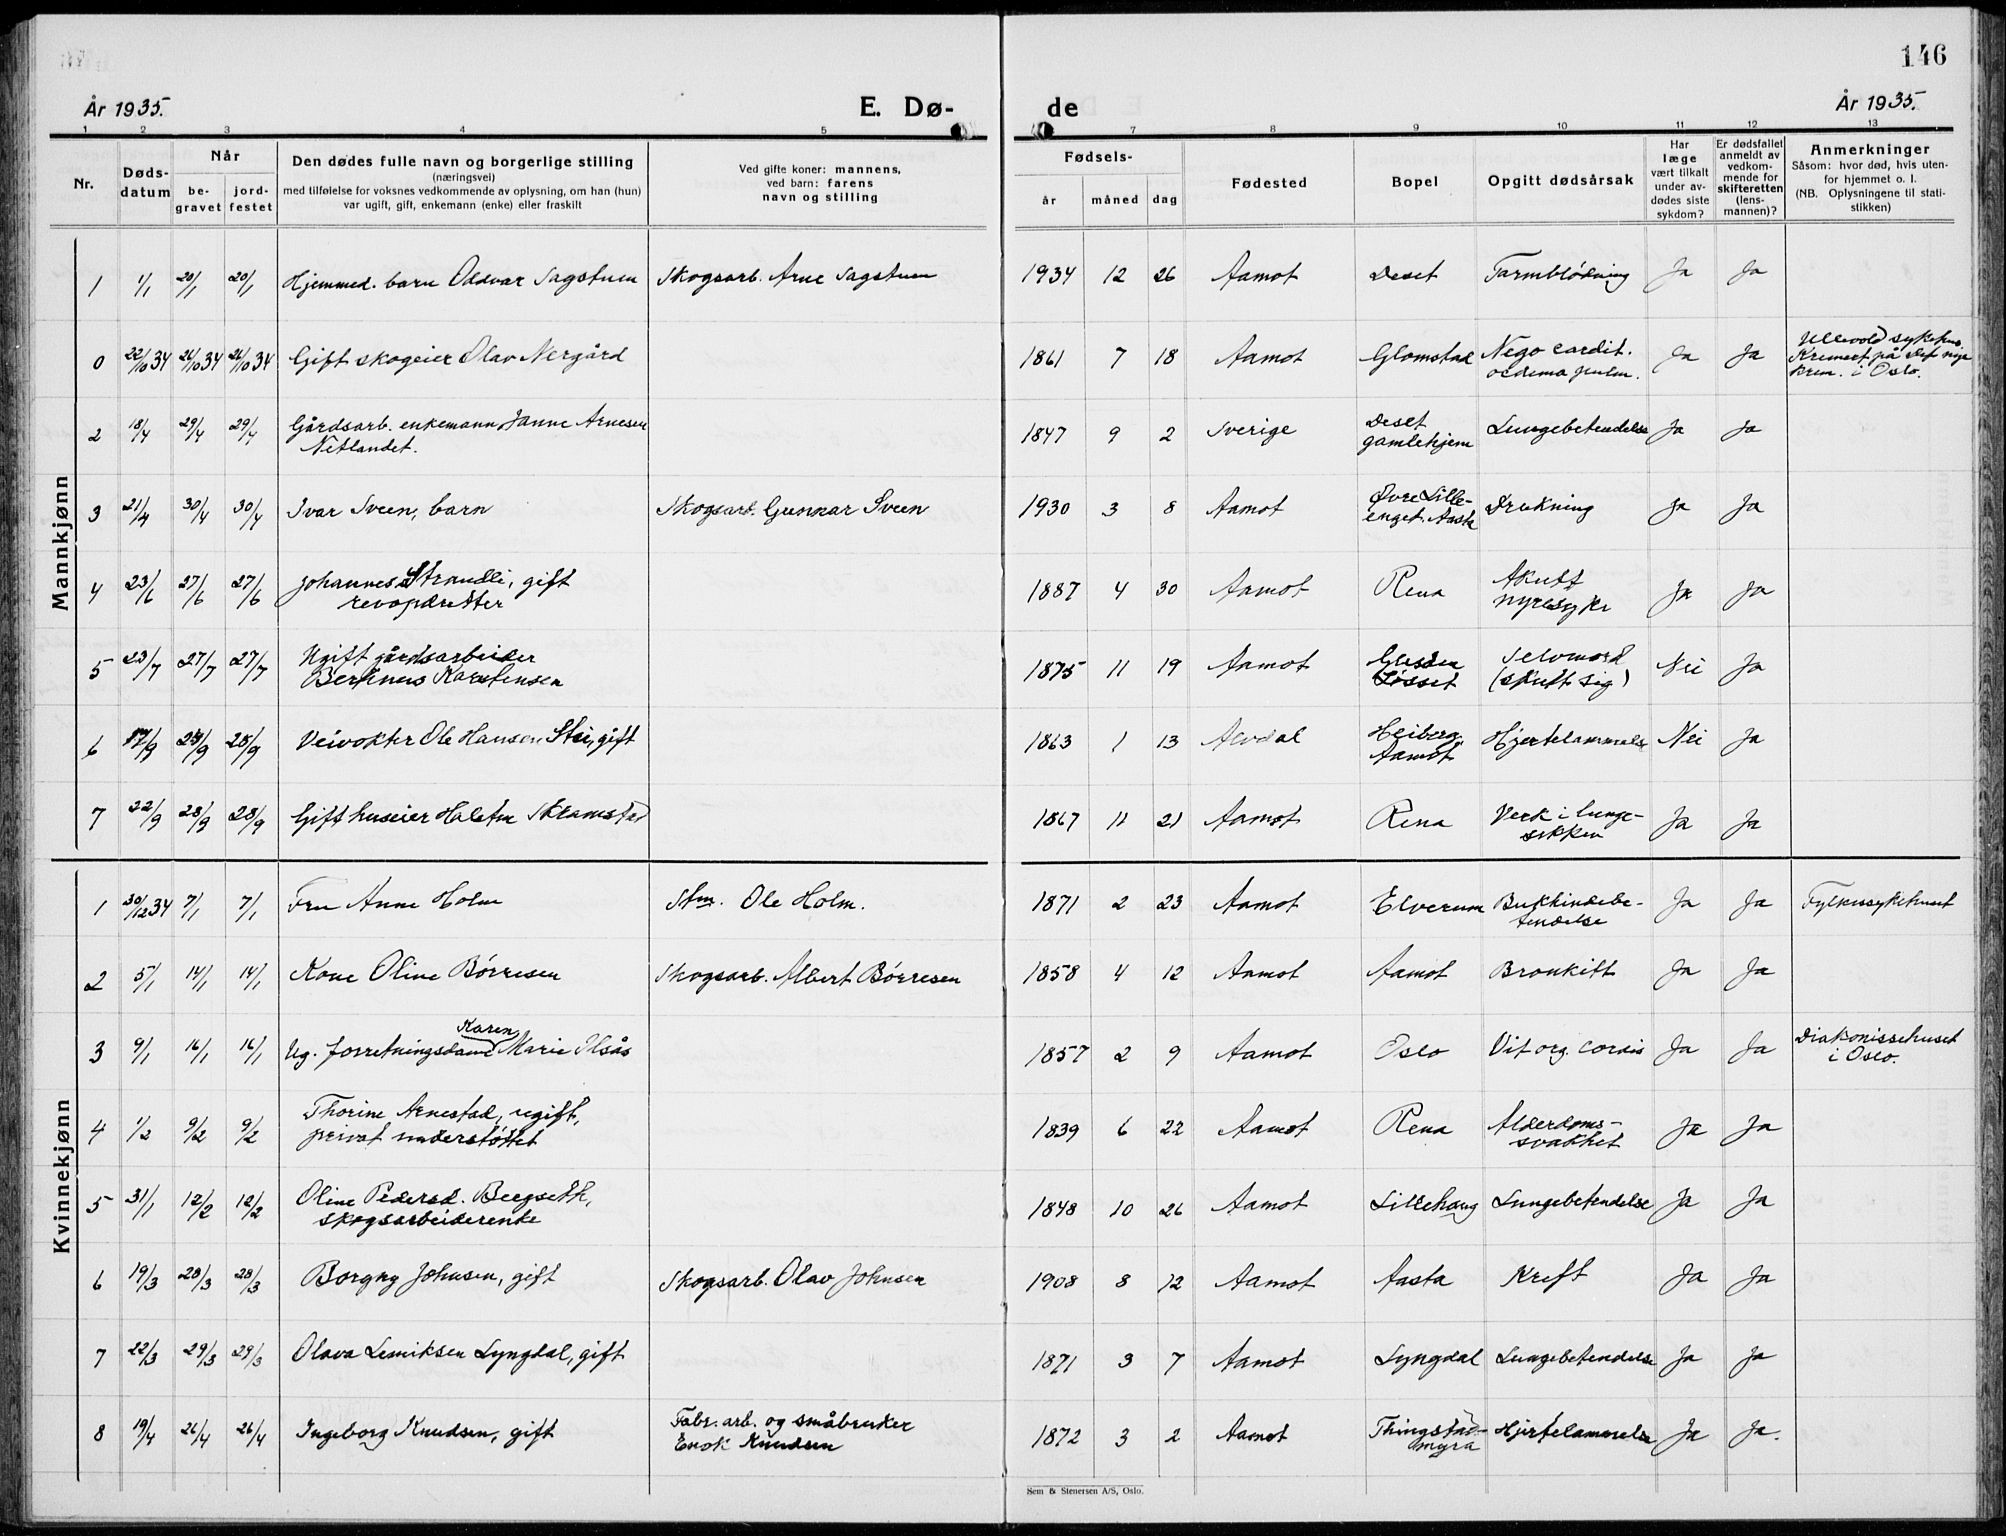 146
År 1935.
E. Dø-
de
År 1935.
1 2 3 4 5 7 8 9 10 11 12 13
Nr.
Døds-
datum
Når
be-
gravet
jord-
festet
Den dødes fulle navn og borgerlige stilling
(næringsvei)
med tilføielse for voksnes vedkommende av oplysning, om han (hun)
var ugift, gift, enkemann (enke) eller fraskilt
Ved gifte koner: mannens,
ved barn: farens
navn og stilling
Fødsels-
år måned dag
Fødested
Bopel
Opgitt dødsårsak
Har
læge
vært tilkalt
under av-
dødes siste
sykdom?
Er dødsfallet
anmeldt av
vedkom-
mende for
skifteretten
(lens-
mannen)?
Anmerkninger
Såsom: hvor død, hvis uten-
for hjemmet o. l.
(NB. Oplysningene til stati-
stikken)
Mannkjønn
1 1/1 20/1 20/1 Hjemmed. barn Oddvar Sagstuen Skogsarb. Arne Sagstuen 1934 12 26 Aamot Deset Tarmblødning Ja Ja
0 22/10 34 26/10 34 26/10 34 Gift skogeier Olav Nergård 1861 7 18 Aamot Glomstad Nego cardit.
oedema pulm. Ja Ja Ullevold sykehus.
Kremert på det nye
Krem. i Oslo.
2 18/4 29/4 29/4 Gårdsarb. enkemann Janne Arnesen
Netlandet. 1847 9 2 Sverige Deset
gamlehjem Lungebetendelse Ja Ja
3 21/4 30/4 30/4 Ivar Sveen, barn Skogsarb. Gunnar Sveen 1930 3 8 Aamot Øvre Lille-
enget. Aasta Drukning Ja Ja
4 23/6 27/6 27/6 Johannes Strandli, gift
revopdretter 1887 4 30 Aamot Rena Akutt
nyresyke Ja Ja
5 23/7 27/7 27/7 Ugift gårdsarbeider
Bertinus Karstensen 1875 11 19 Aamot
Løsset Selvmord
(skutt sig) Nei Ja
6 17/9 28/9 Veivokter Ole Hansen Stei, gift 1863 1 13 Alvdal Heiberg
Aamot Hjertelammelse Nei Ja
7 22/9 28/9 28/9 Gift huseier Halstn Skramstad 1867 11 21 Aamot Rena Verk i lunge-
sekken Ja Ja
Kvinnekjønn
1 30/12 34 7/1 7/1 Fru Anne Holm Stm. Ole Holm. 1871 2 23 Aamot Elverum Bukhindebe-
tendelse Ja Ja Fylkessykehuset
2 5/1 14/1 14/1 Kone Oline Børresen Skogsarb. Albert Børresen 1858 4 12 Aamot Aamot Bronkitt Ja Ja
3 9/1 16/1 16/1 Ug. forretningsdame Karen Marie Olsås 1857 2 9 Aamot Oslo Vit. org. cordis Ja Ja Diakonissehuset
i Oslo.
4 1/2 9/2 9/2 Thorine Arnestad, ugift,
privat understøttet 1839 6 22 Aamot Rena Alderdoms-
svakhet Ja Ja
5 31/1 12/2 12/2 Oline Pedersd. Bergseth,
skogsarbeiderenke 1848 10 26 Aamot Lillehaug Lungebetendelse Ja Ja
6 19/3 28/3 28/3 Borgny Johnsen, gift Skogsarb. Olav Johnsen 1908 8 12 Aamot Aasta Kreft Ja Ja
7 22/3 29/3 29/3 Olava Lemiksen Lyngdal, gift 1871 3 7 Aamot Lyngdal Lungebetendelse Ja Ja
8 19/4 26/4 26/4 Ingeborg Knudsen, gift Fabr. arb. og småbruker
Enok Knudsen 1872 3 2 Aamot Thingstad-
myra Hjertelammelse Ja Ja.
Sem & Stenersen A/S, Oslo.